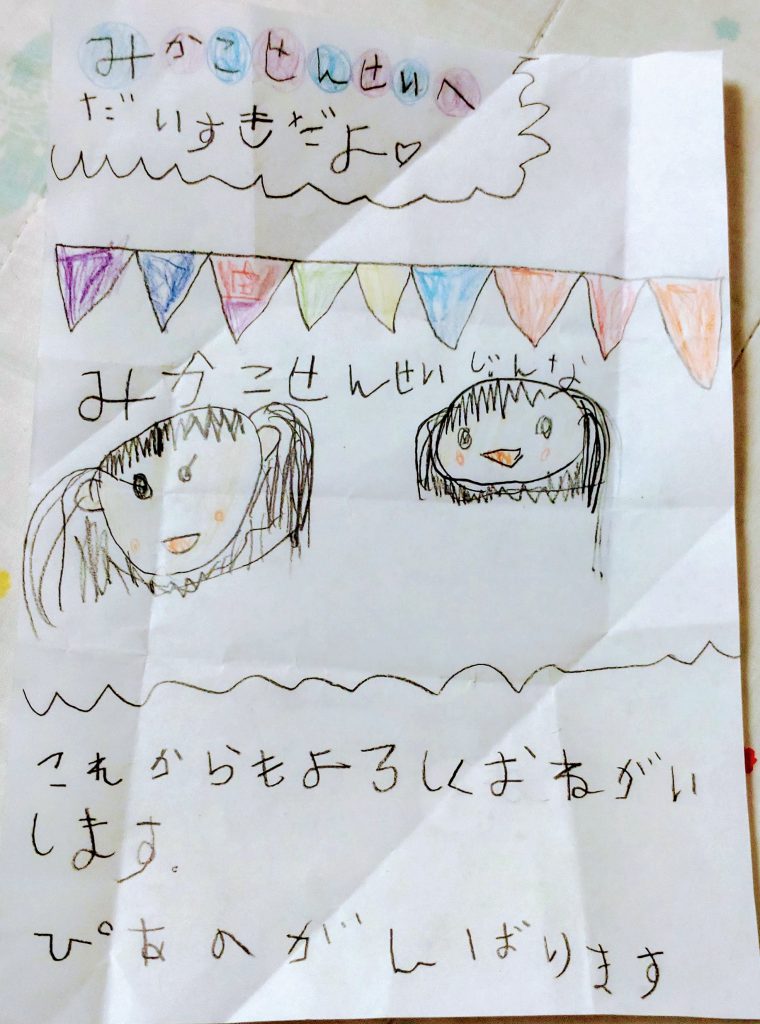 みかこせんせいへ
だいすきだよ♡
みかこせんせい じんな
これからもよろしくおねがい
します。
ぴあのがんばります